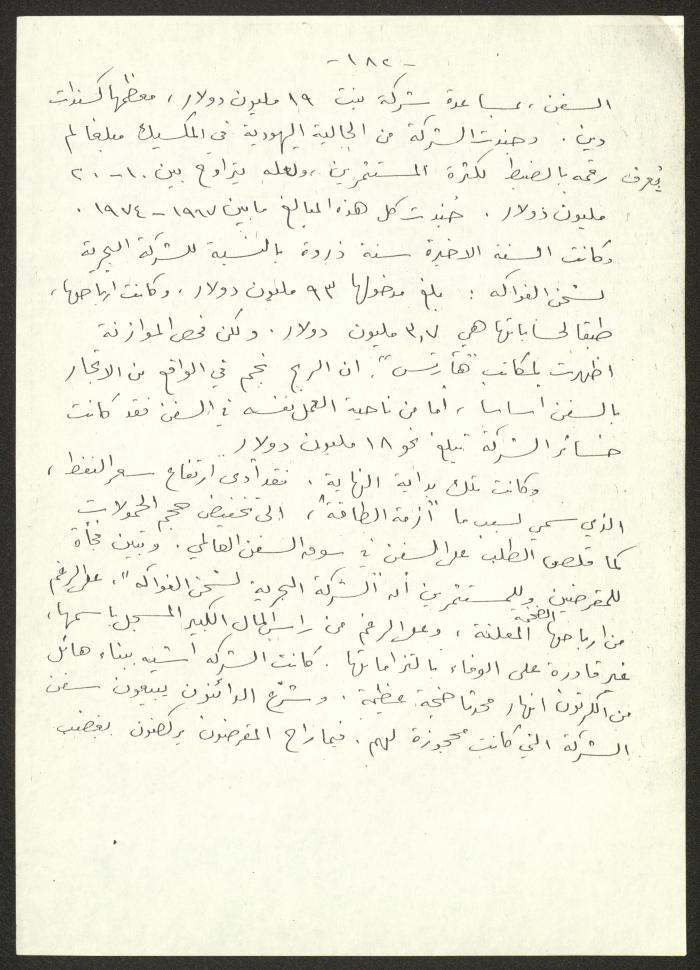 - ١٨٢ -
السفن، بمساعدة شركة بنت ١٩ مليون دولار، معظمها كسندات
دين. وجندت الشركة من الجالية اليهودية في المكسيك مبلغا لم
يُعرف رقمه بالضبط لكثرة المستثمرين، ولعله يتراوح بين ١٠-٢٠
مليون دولار. جُندت كل هذه المبالغ ما بين ١٩٦٧-١٩٧٤.
وكانت السنة الاخيرة سنة ذروة بالنسبة للشركة البحرية
لشحن الفواكه: بلغ مدخولها ٩٣ مليون دولار، وكانت ارباحها،
طبقا لحساباتها هي ٣,٧ مليون دولار. ولكن فحص الموازنة
اظهرت لمكاتب "هآرتس". ان الربح نجم في الواقع من الاتجار
بالسفن اساسا، أما من ناحية العمل نفسه في السفن فقد كانت
خسائر الشركة تبلغ نحو ١٨ مليون دولار
وكانت تلك بداية النهاية. فقد أدى ارتفاع سعر النفط،
الذي سمي لسبب ما "أزمة الطاقة"، الى تخفيض حجم الحمولات
كما قلص الطلب على السفن في سوق السفن العالمي. وتبين فجأة
للمقرضين وللمستثمرين أن "الشركة البحرية لشحن الفواكه"، على الرغم
من ارباحها الضخمة المعلنة، وعلى الرغم من راس المال الكبير المسجل باسمها،
غير قادرة على الوفاء بالتزاماتها. كانت الشركة أشبه ببناء هائل
من الكرتون انهار محدثا ضجة عظيمة. وشرع الدائنون يبيعون سفن
الشركة التي كانت محجوزة لهم. فيما راح المقرضون يركضون بغضب